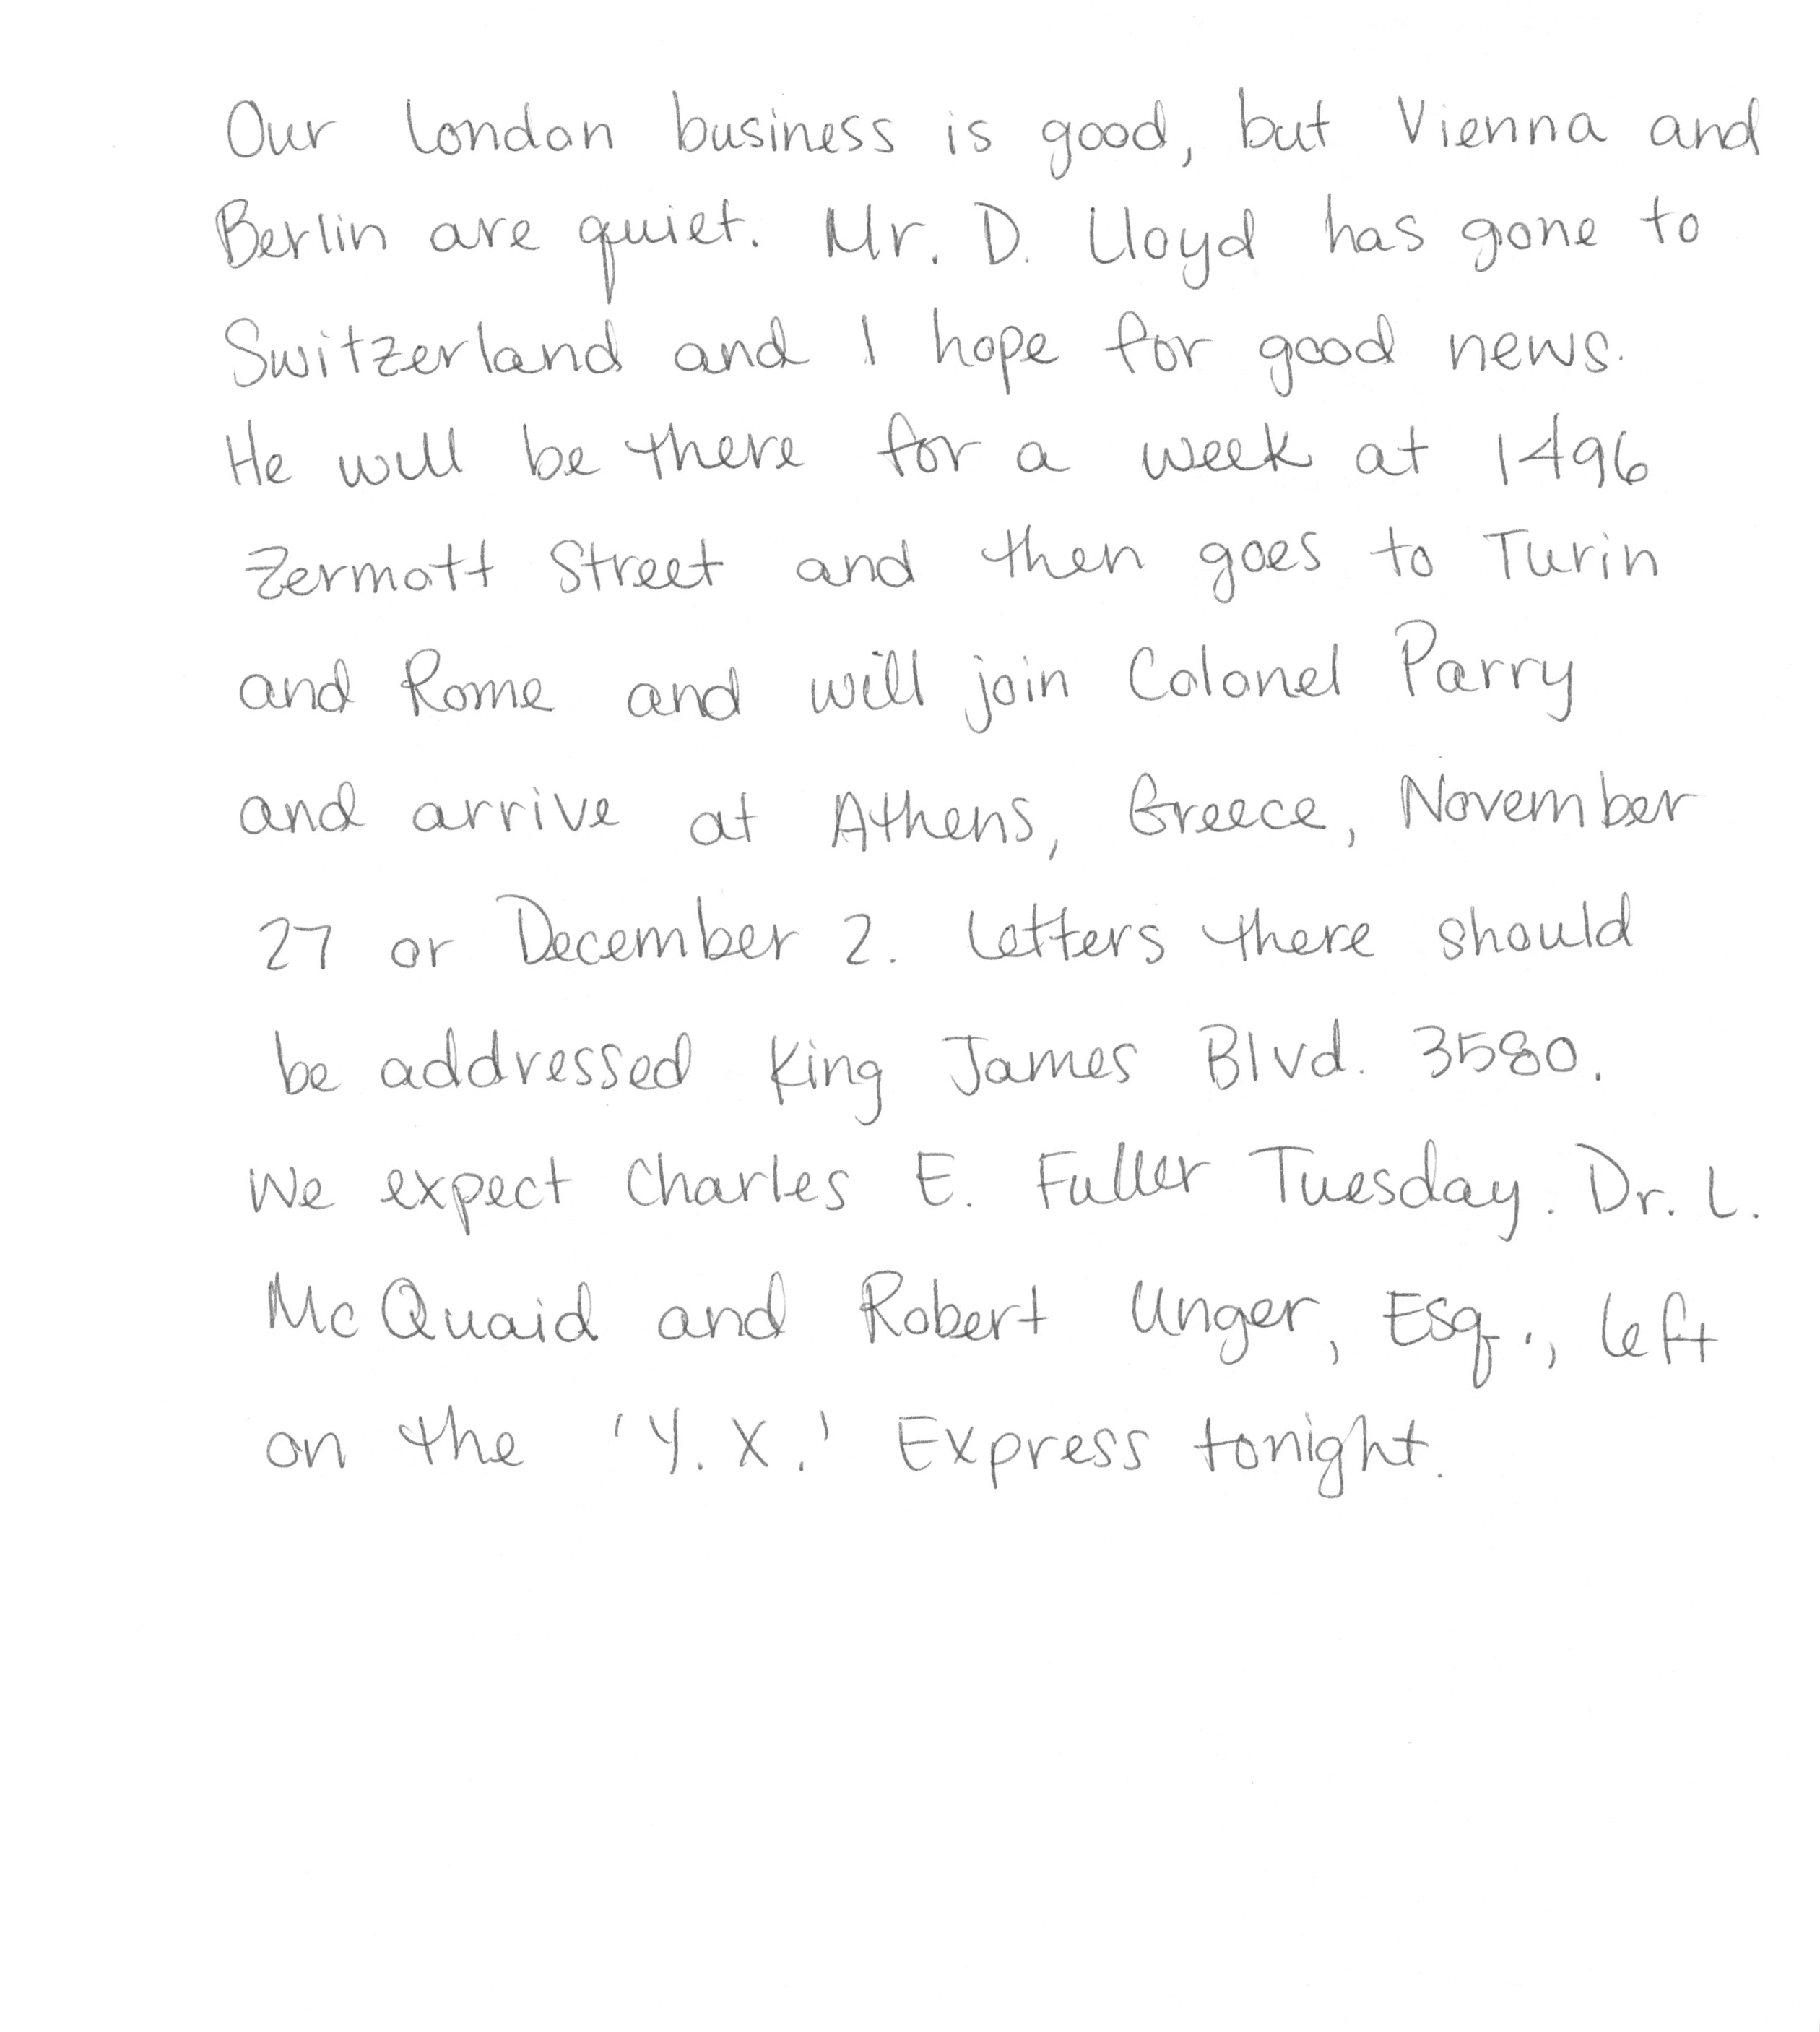 Our London business is good, but Vienna and
Berlin are quiet. Mr. D. Lloyd has gone to
Switzerland and I hope for good news.
He will be there for a week at 1496
Zermott Street and then goes to Turin
and Rome and will join Colonel Parry
and arrive at Athens, Greece, November
27 or December 2. Letters there should
be addressed King James Blvd. 3580.
We expect Charles E. Fuller Tuesday. Dr. L.
McQuaid and Robert Unger, Esq., left
on the 'Y. X.' Express tonight.